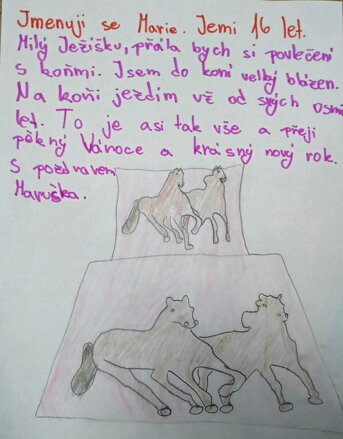 Jmenuji se Marie. Jemi 16 let.
Milý Ježíšku, přála bych si povlečení
s koňmi. Jsem do koní velký blázen.
Na koni jezdím už od svých osmi
let. To je asi tak vše a přeji
pěkný Vánoce a krásný nový rok.
S pozdravem
Maruška.